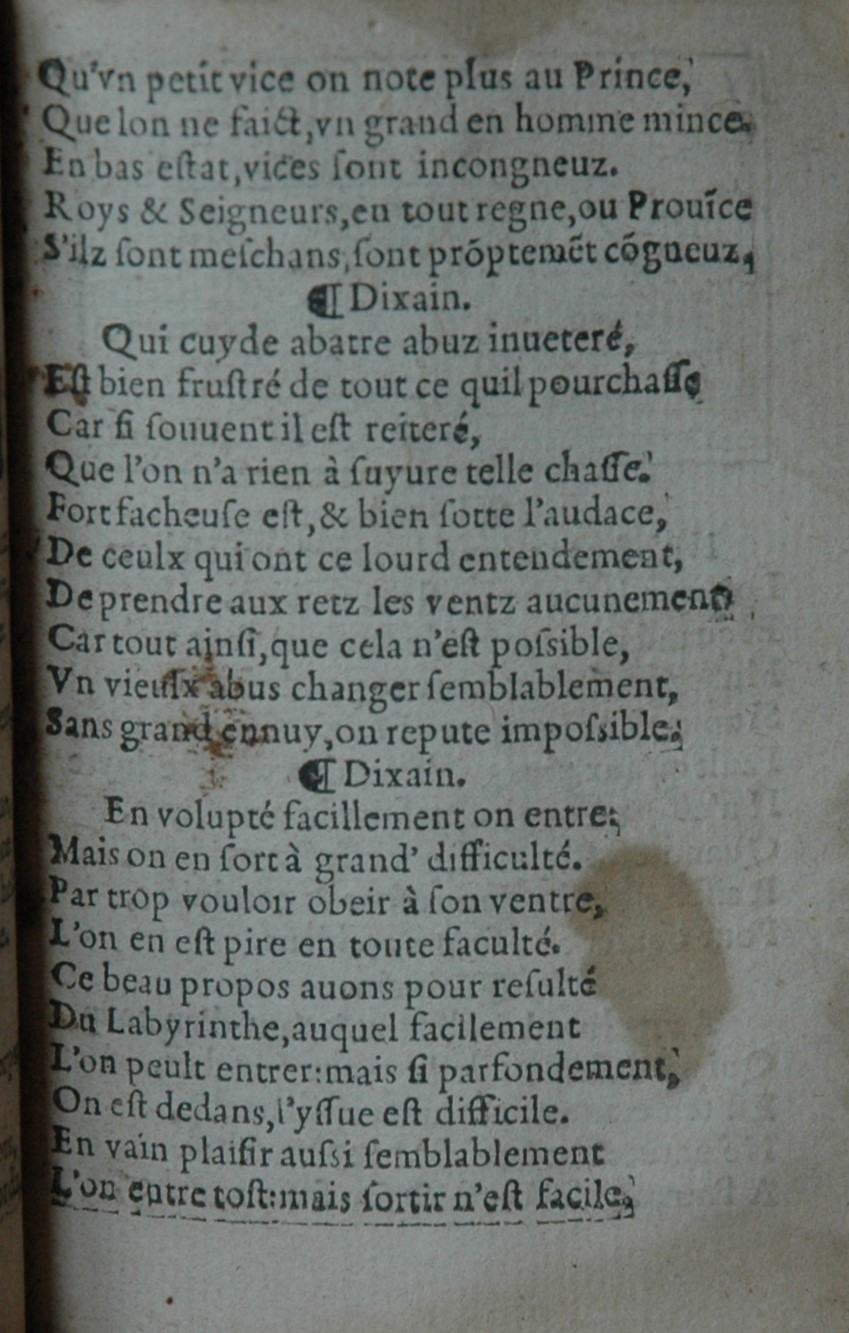 Qu'vn petit vice on note plus au Prince,
Que lon ne faict, vn grand en homme mince.
En bas eſtat, vices ſont incongneuz.
Roys & Seigneurs, en tout regne, ou Prouīce
S'ilz ſont meſchans, ſont prōptemēt cōgneuz,
¶ Dixain.
Qui cuyde abatre abuz inueteré,
Eſt bien fruſtré de tout ce quil pourchaſſe
Car ſi ſouuent il eſt reiteré,
Que l'on n'a rien à ſuyure telle chaſſe.
Fort facheuſe eſt, & bien ſotte l'audace,
De ceulx qui ont ce lourd entendement,
De prendre aux retz les ventz aucunement
Car tout ainſi, que cela n'eſt poſsible,
Vn vieulx abus changer ſemblablement,
Sans grand ennuy, on repute impoſsible.
¶ Dixain.
En volupté facillement on entre:
Mais on en ſort à grand' difficulté.
Par trop vouloir obeir à ſon ventre,
L'on en eſt pire en toute faculté.
Ce beau propos auons pour reſulté
Du Labyrinthe, auquel facilement
L'on peult entrer: mais ſi parfondement,
On eſt dedans, l'yſſue eſt difficile.
En vain plaiſir auſsi ſemblablement
L'on entre toſt: mais ſortir n'eſt facile.